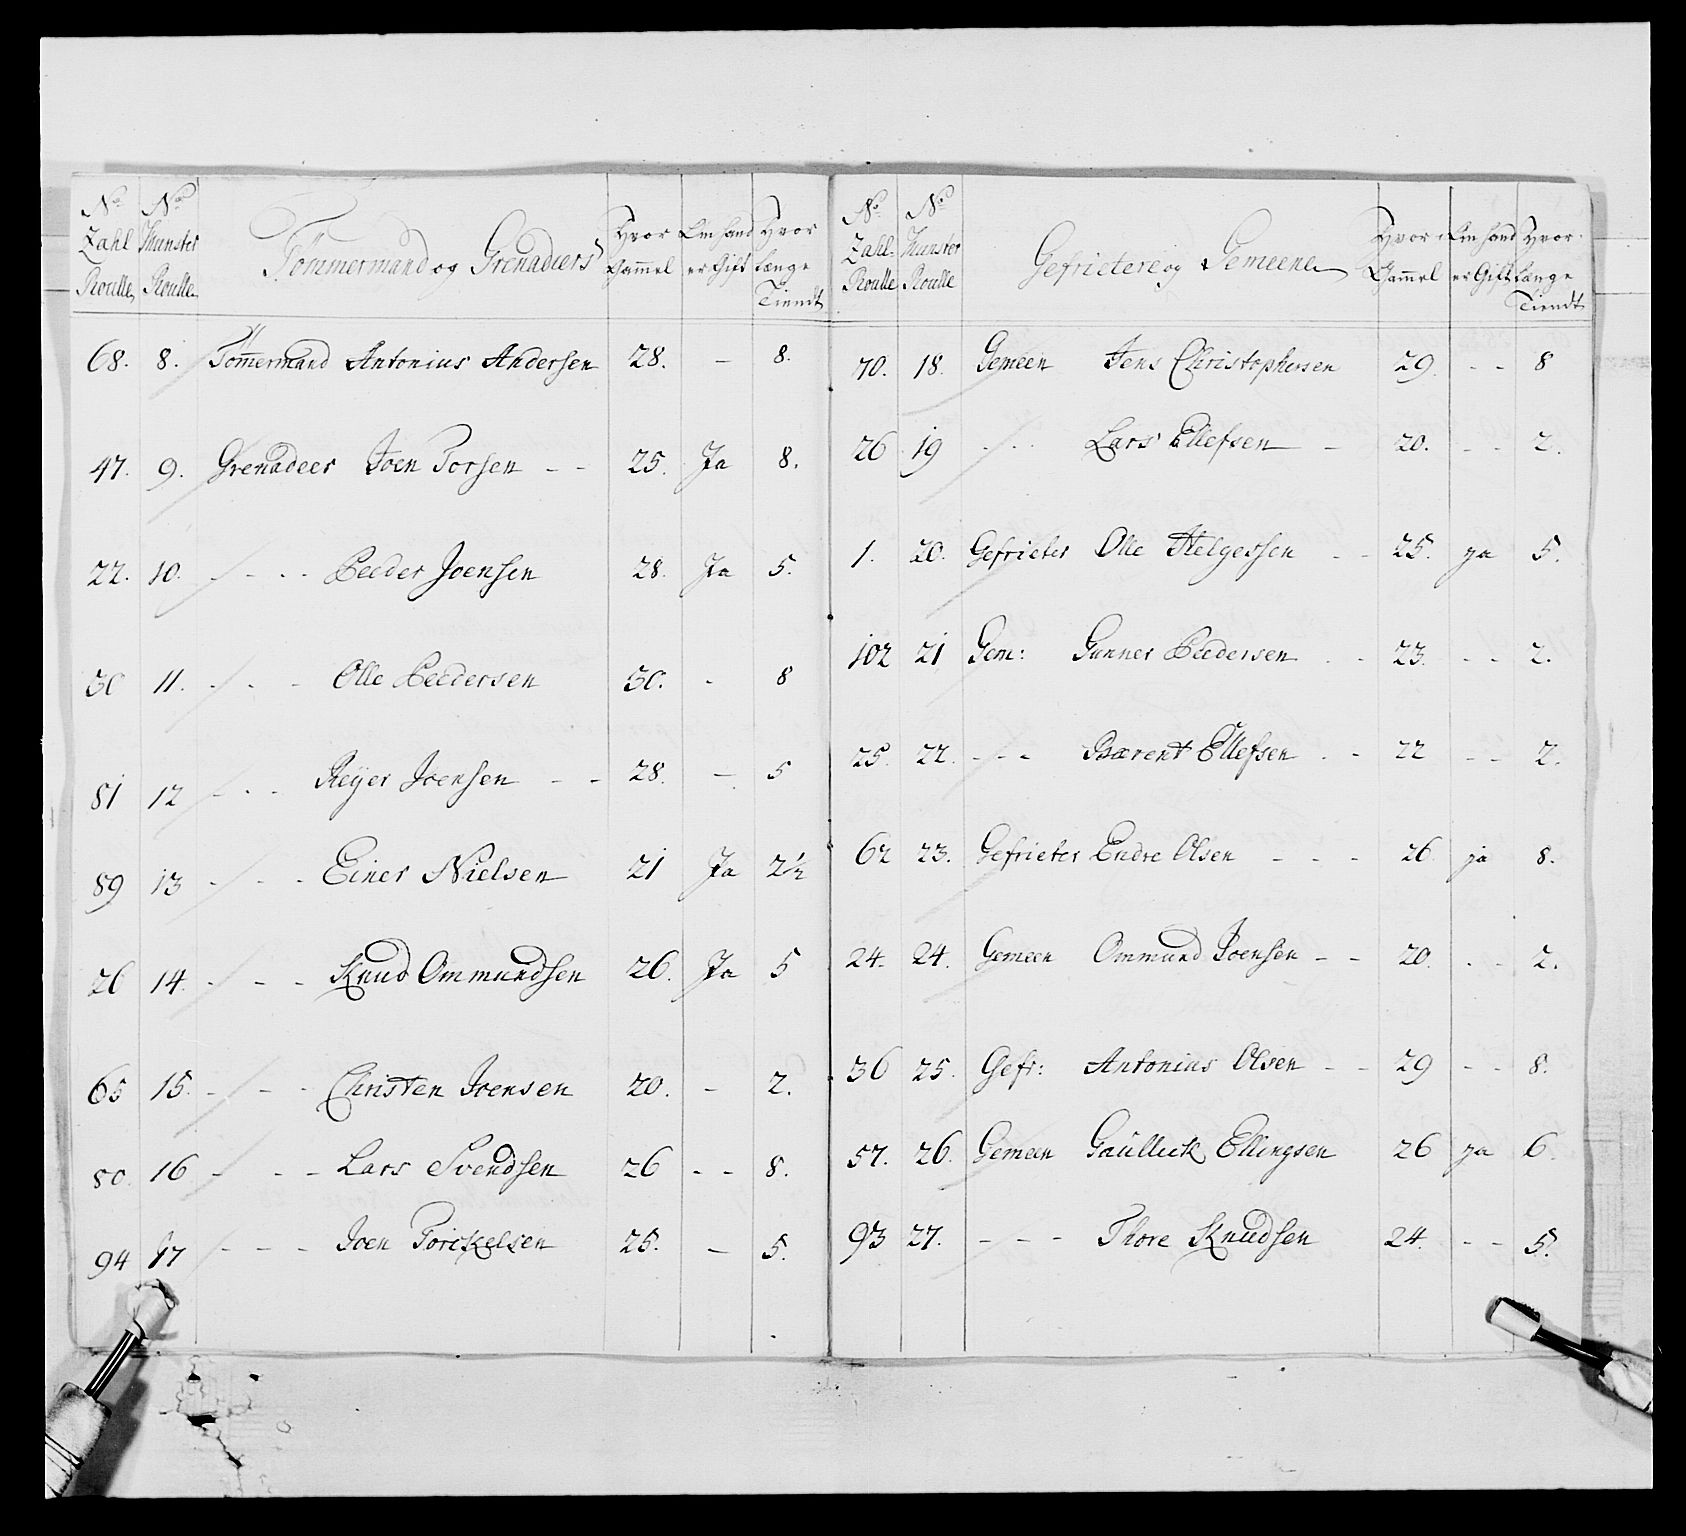 No Zahl Roulle | No Munster Roulle | Tömmermand og Grenadiers | Hvor Gammel | Om hand er Gift | Hvor længe Tiendt
68. 8. Tömmermand Antonius Andersen 28. – 8.
47. 9. Grenadeer Joen Torsen - - 25. Ja 8.
22. 10. - - - Peeder Joensen 28. Ja 5.
30 11. - - - Olle Peedersen 30. - 8
81 12 - - - Reÿer Joensen - - 28. – 5
89 13 - - - Einer Nielsen 21 Ja 2½
26 14. - - - Knud Ommundsen 26. Ja 5
65 15. - - - Christen Joensen 20. - 2.
80. 16 - - - Lars Svendsen 26 - - 8.
94 17 - - - Joen Torckelsen 25. – 5.
No Zahl Roulle | No Munster Roulle | Gefrietere og Gemeene | Hvor Gammel | Om hand er Gift | Hvor længe Tiendt
70. 18. Gemeen Jens Christophersen 29. - - 8
26 19 - - - Lars Ellefsen - 20. - - 2.
1. 20. Gefrieter Olle Helgessen - - 25. ja 5.
102 21 Gem: Gunner Peedersen - - 23. - - 2.
25. 22. - - - Bærent Ellefsen - - 22 - - 2.
62 23. Gefrieter Endre Olsen - - - 26 ja 8.
24. 24. Gemeen Ommund Joensen - - 20. - - 2.
36 25. Gefr: Antonius Olsen - - 29 - - 8.
57. 26. Gemeen Gaülleck Ellingsen 26 ja 6.
93 27. - - - Thore Knudsen 24. - - 5.